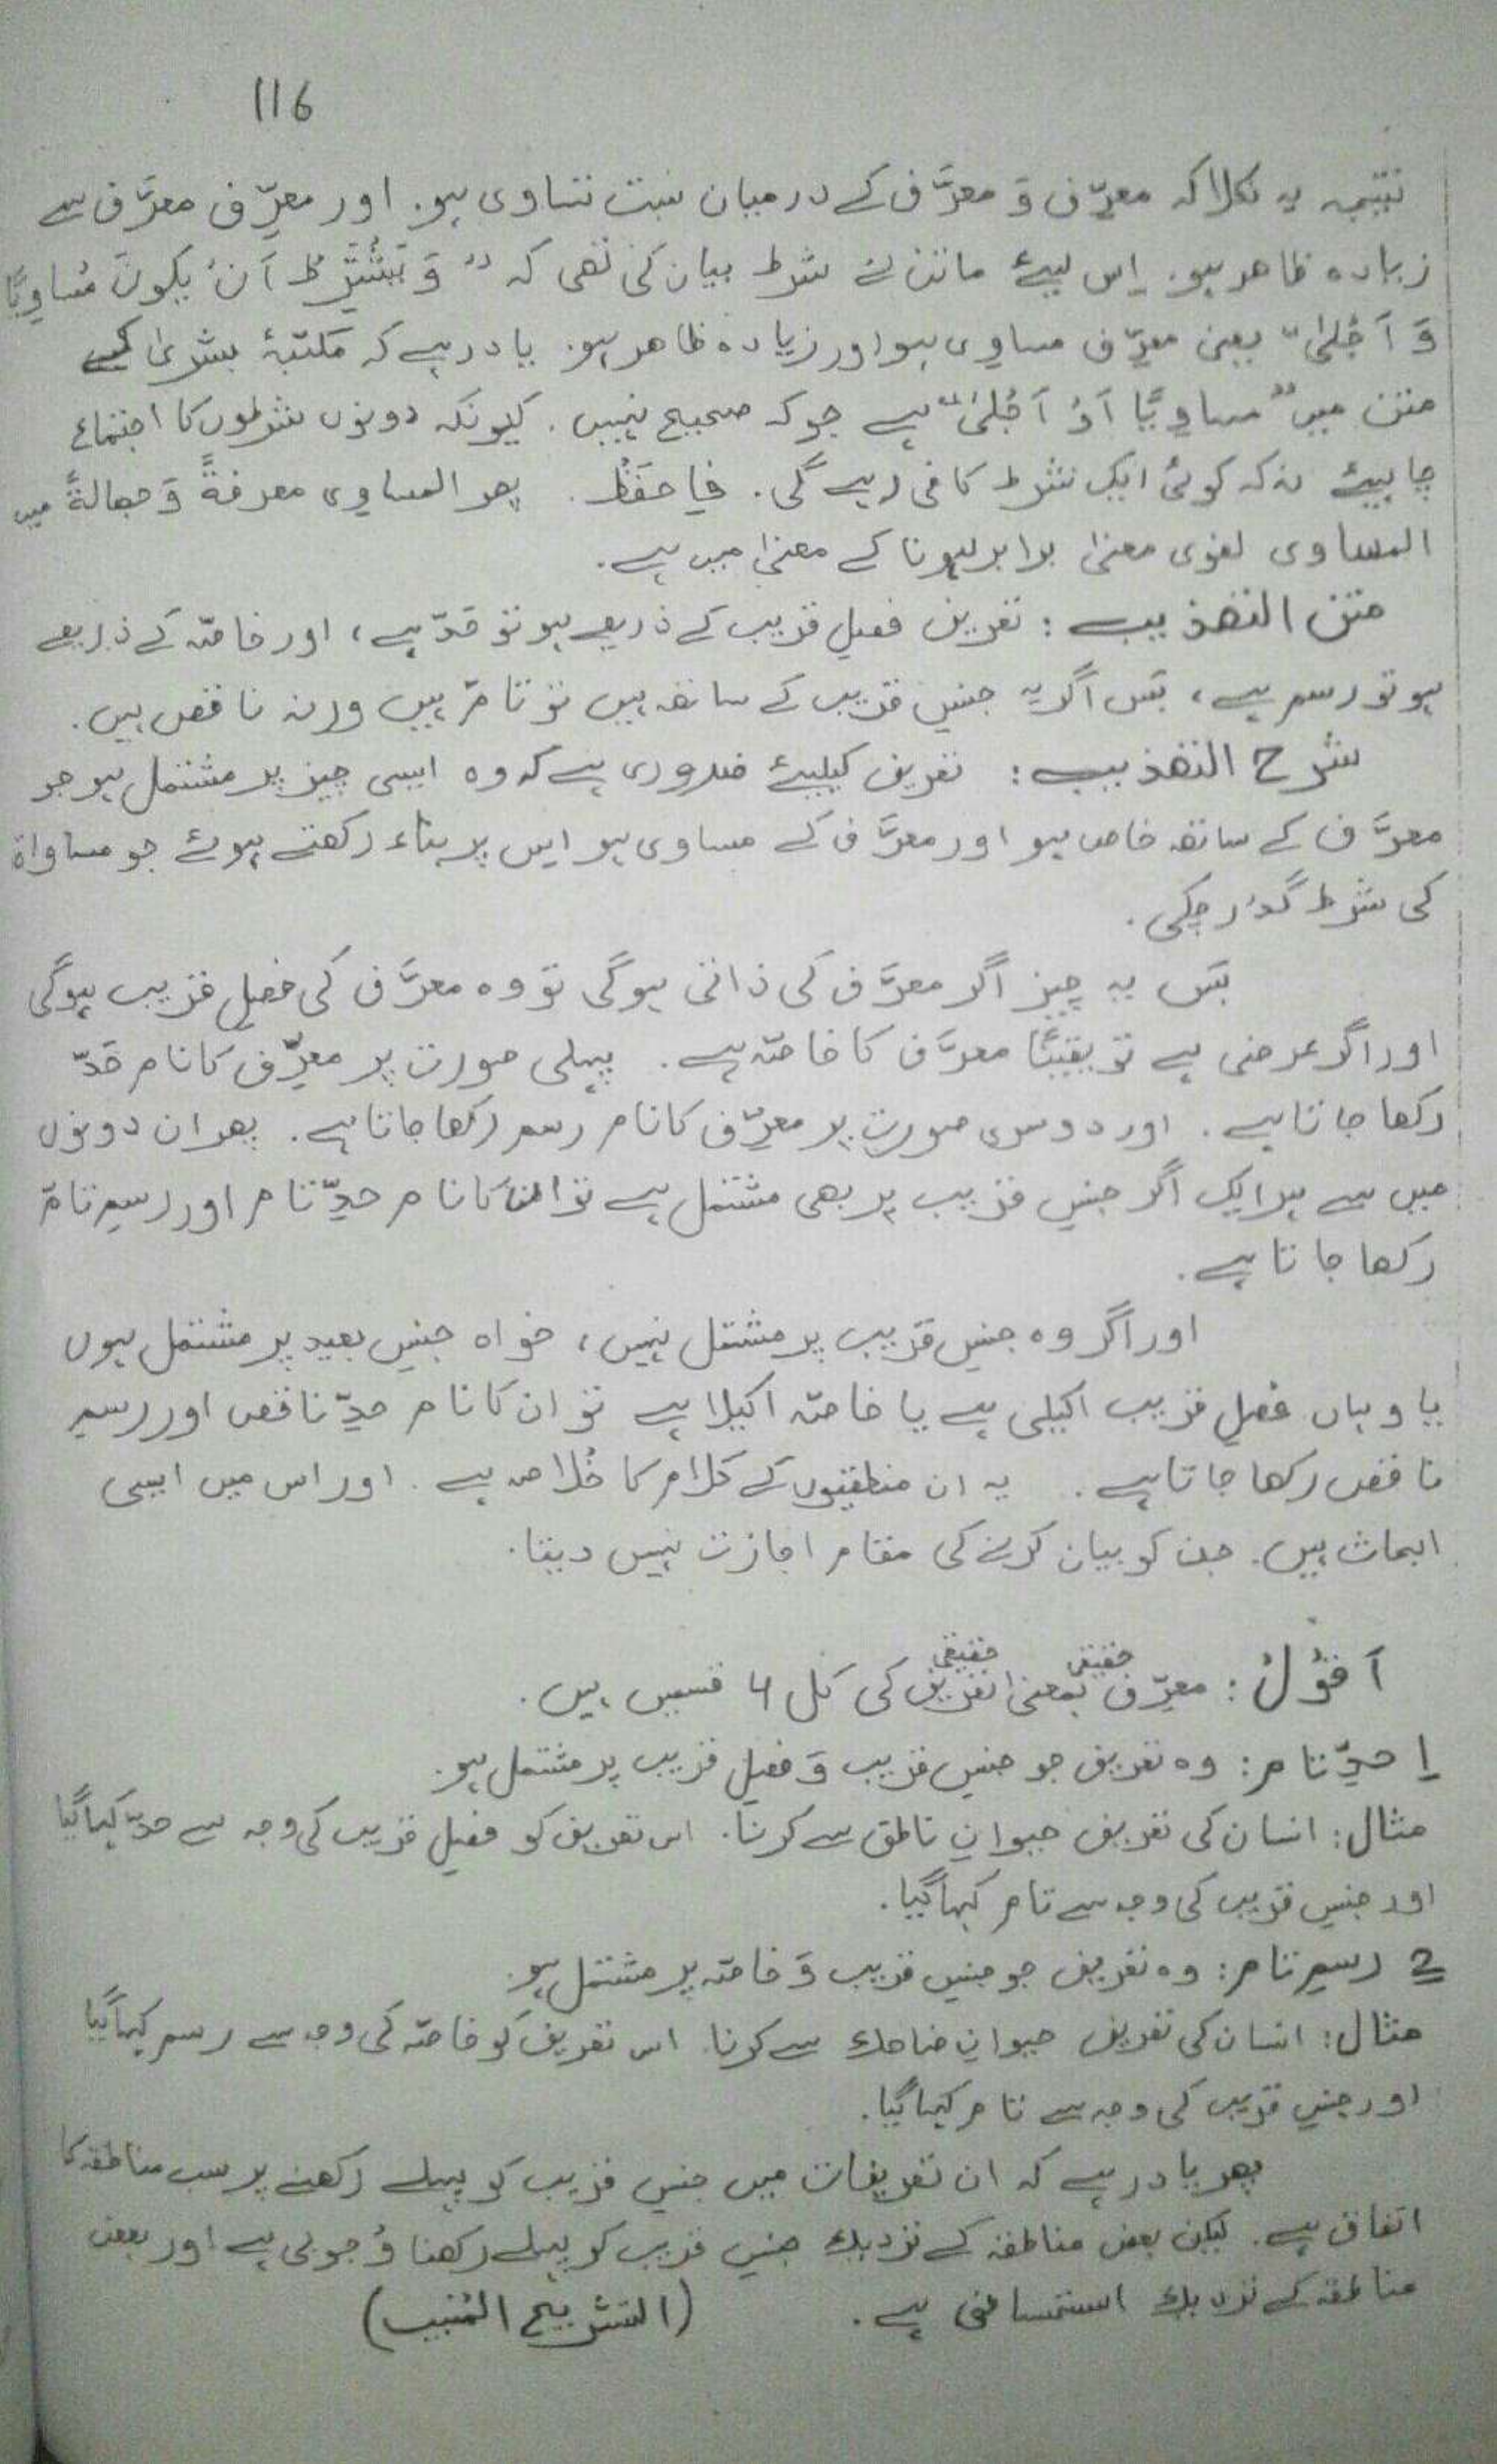 116
نتیجہ یہ نکلا کہ معرِّف وَ معرَّف کے درمیان نسبت تساوی ہو. اور معرِّف معرَّف سے
زیادہ ظاھر ہو. اِس لیئے ماتن نے شرط بیان کی تھی کہ " وَ یُشْتَرَطُ اَنْ یکونَ مُساوِیًا
وَ اَجْلیٰ" یعنی معرِّف مساوِی ہو اور زیادہ ظاھر ہو. یاد رہے کہ مکتبۂ بشریٰ کے
متن میں "مساوِیًا اَوْ اَجْلیٰ" ہے جو کہ صحیح نہیں. کیونکہ دونوں شرطوں کا اجتماع
چاہیئے نہ کہ کوئی ایک شرط کافی رہے گی. فَاحفَظْ. پھر المساوِی معرفةً وَ جھالةً میں
المساوی لغوی معنیٰ برابر ہونا کے معنیٰ میں ہے.
متن التھذیب : تعریف فصلِ قریب کے ذریعے ہو تو حَدّ ہے، اور خاصّہ کے ذریعے
ہو تو رسم ہے، بَس اگر یہ جنسِ قریب کے ساتھ ہیں تو تامّ ہیں ورنہ ناقص ہیں.
شرح التھذیب : تعریف کیلیئے ضروری ہے کہ وہ ایسی چیز پر مشتمل ہو جو
معرَّف کے ساتھ خاص ہو اور معرَّف کے مساوی ہو اِس پر بناء رکھتے ہوئے جو مساواة
کی شرط گذر چکی.
بَس یہ چیز اگر معرَّف کی ذاتی ہوگی تو وہ معرَّف کی فصلِ قریب ہوگی
اور اگر عرضی ہے تو یقینًا معرَّف کا خاصّہ ہے. پہلی صورت پر معرِّف کا نام حَدّ
رکھا جاتا ہے. اور دوسری صورت پر معرِّف کا نام رسم رکھا جاتا ہے. پھر ان دونوں
میں سے ہر ایک اگر جنسِ قریب پر بھی مشتمل ہے تو ان کا نام حدِّ تام اور رسمِ تامّ
رکھا جاتا ہے.
اور اگر وہ جنسِ قریب پر مشتمل نہیں، خواہ جنسِ بعید پر مشتمل ہوں
یا وہاں فصلِ قریب اکیلی ہے یا خاصّہ اکیلا ہے تو ان کا نام حدِّ ناقص اور رسمِ
ناقص رکھا جاتا ہے. یہ ان منطقیوں کے کلام کا خُلاصہ ہے. اور اس میں ایسی
ابحاث ہیں. جن کو بیان کرنے کی مقام اجازت نہیں دیتا.
اَقُوْلُ : معرِّف حقیقی بمعنیٰ تعریف حقیقی کی کل 4 قسمیں ہیں.
1 حدِّ تام : وہ تعریف جو جنسِ قریب وَ فصلِ قریب پر مشتمل ہو.
مثال : انسان کی تعریف حیوانِ ناطق سے کرنا. اس تعریف کو فصلِ قریب کی وجہ سے حدّ کہا گیا
اور جنسِ قریب کی وجہ سے تام کہا گیا.
2 رسمِ تام : وہ تعریف جو جنسِ قریب وَ خاصّہ پر مشتمل ہو.
مثال : انسان کی تعریف حیوانِ ضاحک سے کرنا. اس تعریف کو خاصّہ کی وجہ سے رسم کہا گیا
اور جنسِ قریب کی وجہ سے تام کہا گیا.
پھر یاد رہے کہ ان تعریفات میں جنسِ قریب کو پہلے رکھنے پر سب مناطقہ کا
اتفاق ہے. لیکن بعض مناطقہ کے نزدیک جنسِ قریب کو پہلے رکھنا وُجوبی ہے اور بعض
مناطقہ کے نزدیک استحسانی ہے. (التشریح المُنیب)